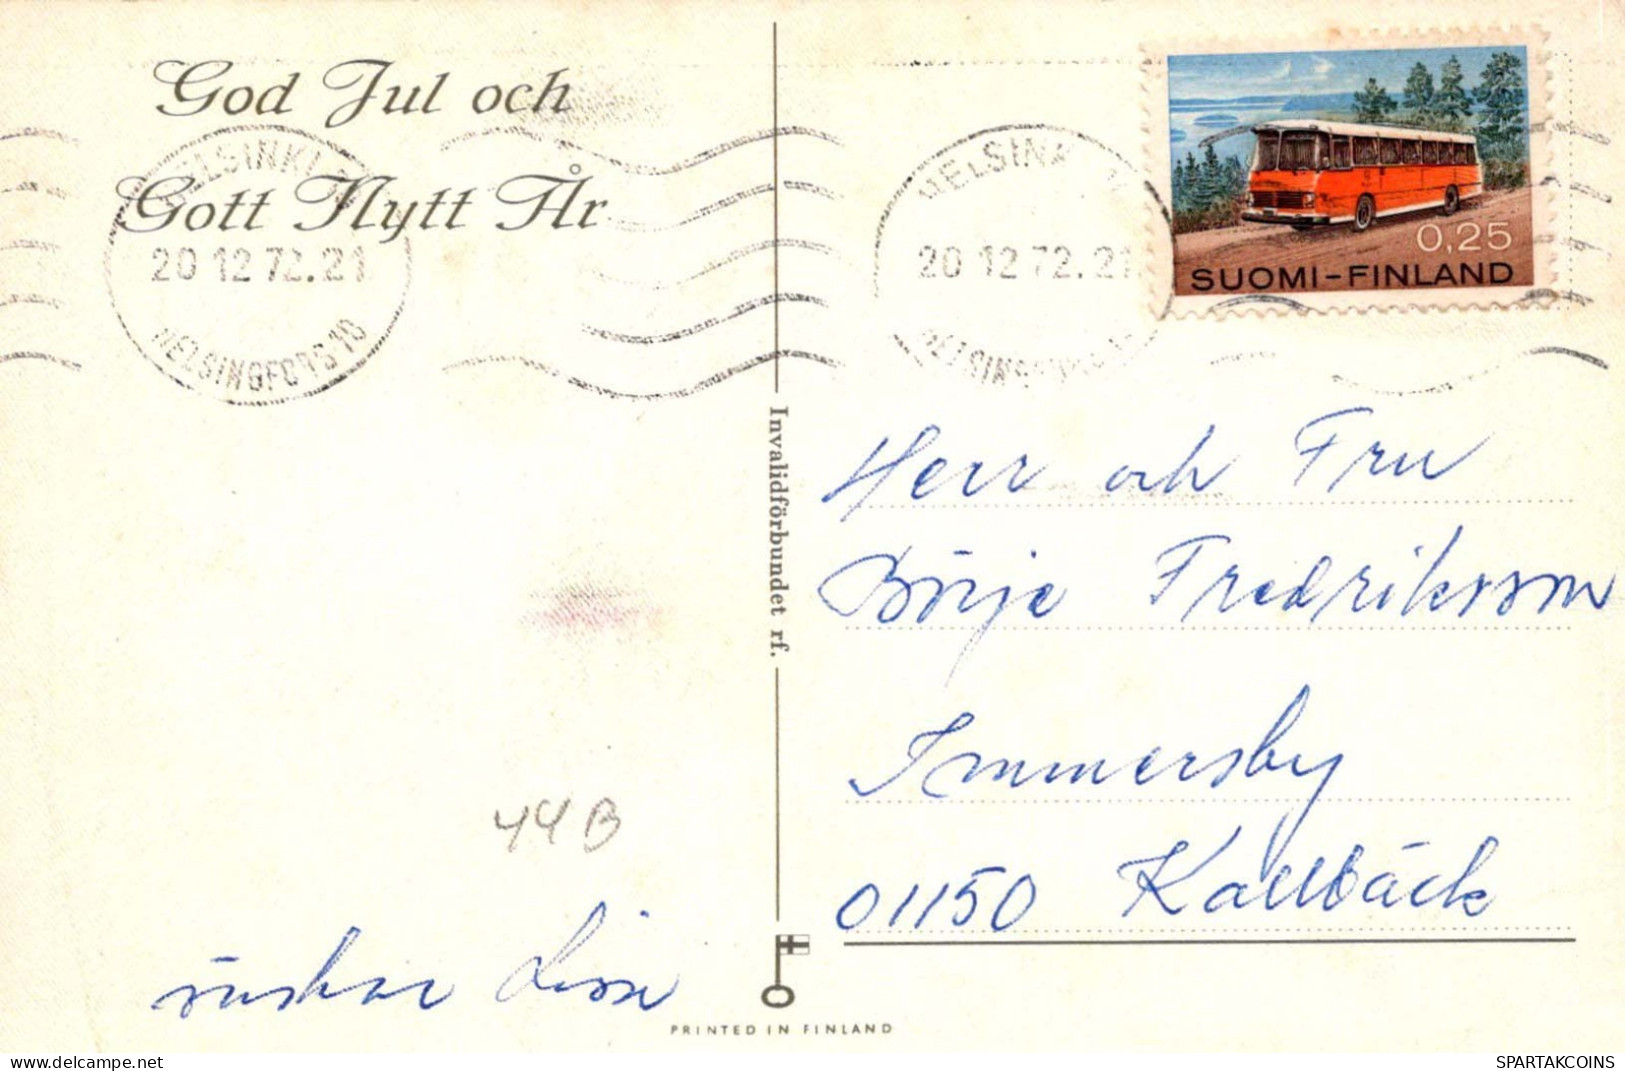 God Jul och
Gott Nytt År
HELSINKI
20.12.72.21
HELSINGFORS 10
HELSINKI
20.12.72.21
HELSINGFORS
0,25
SUOMI-FINLAND
Invalidförbundet rf.
Herr och Fru
Börje Fredriksson
Immersby
01150 Kallbäck
44B
önskar Lisse
PRINTED IN FINLAND
https://www.delcampe.net
SPARTAKCOINS